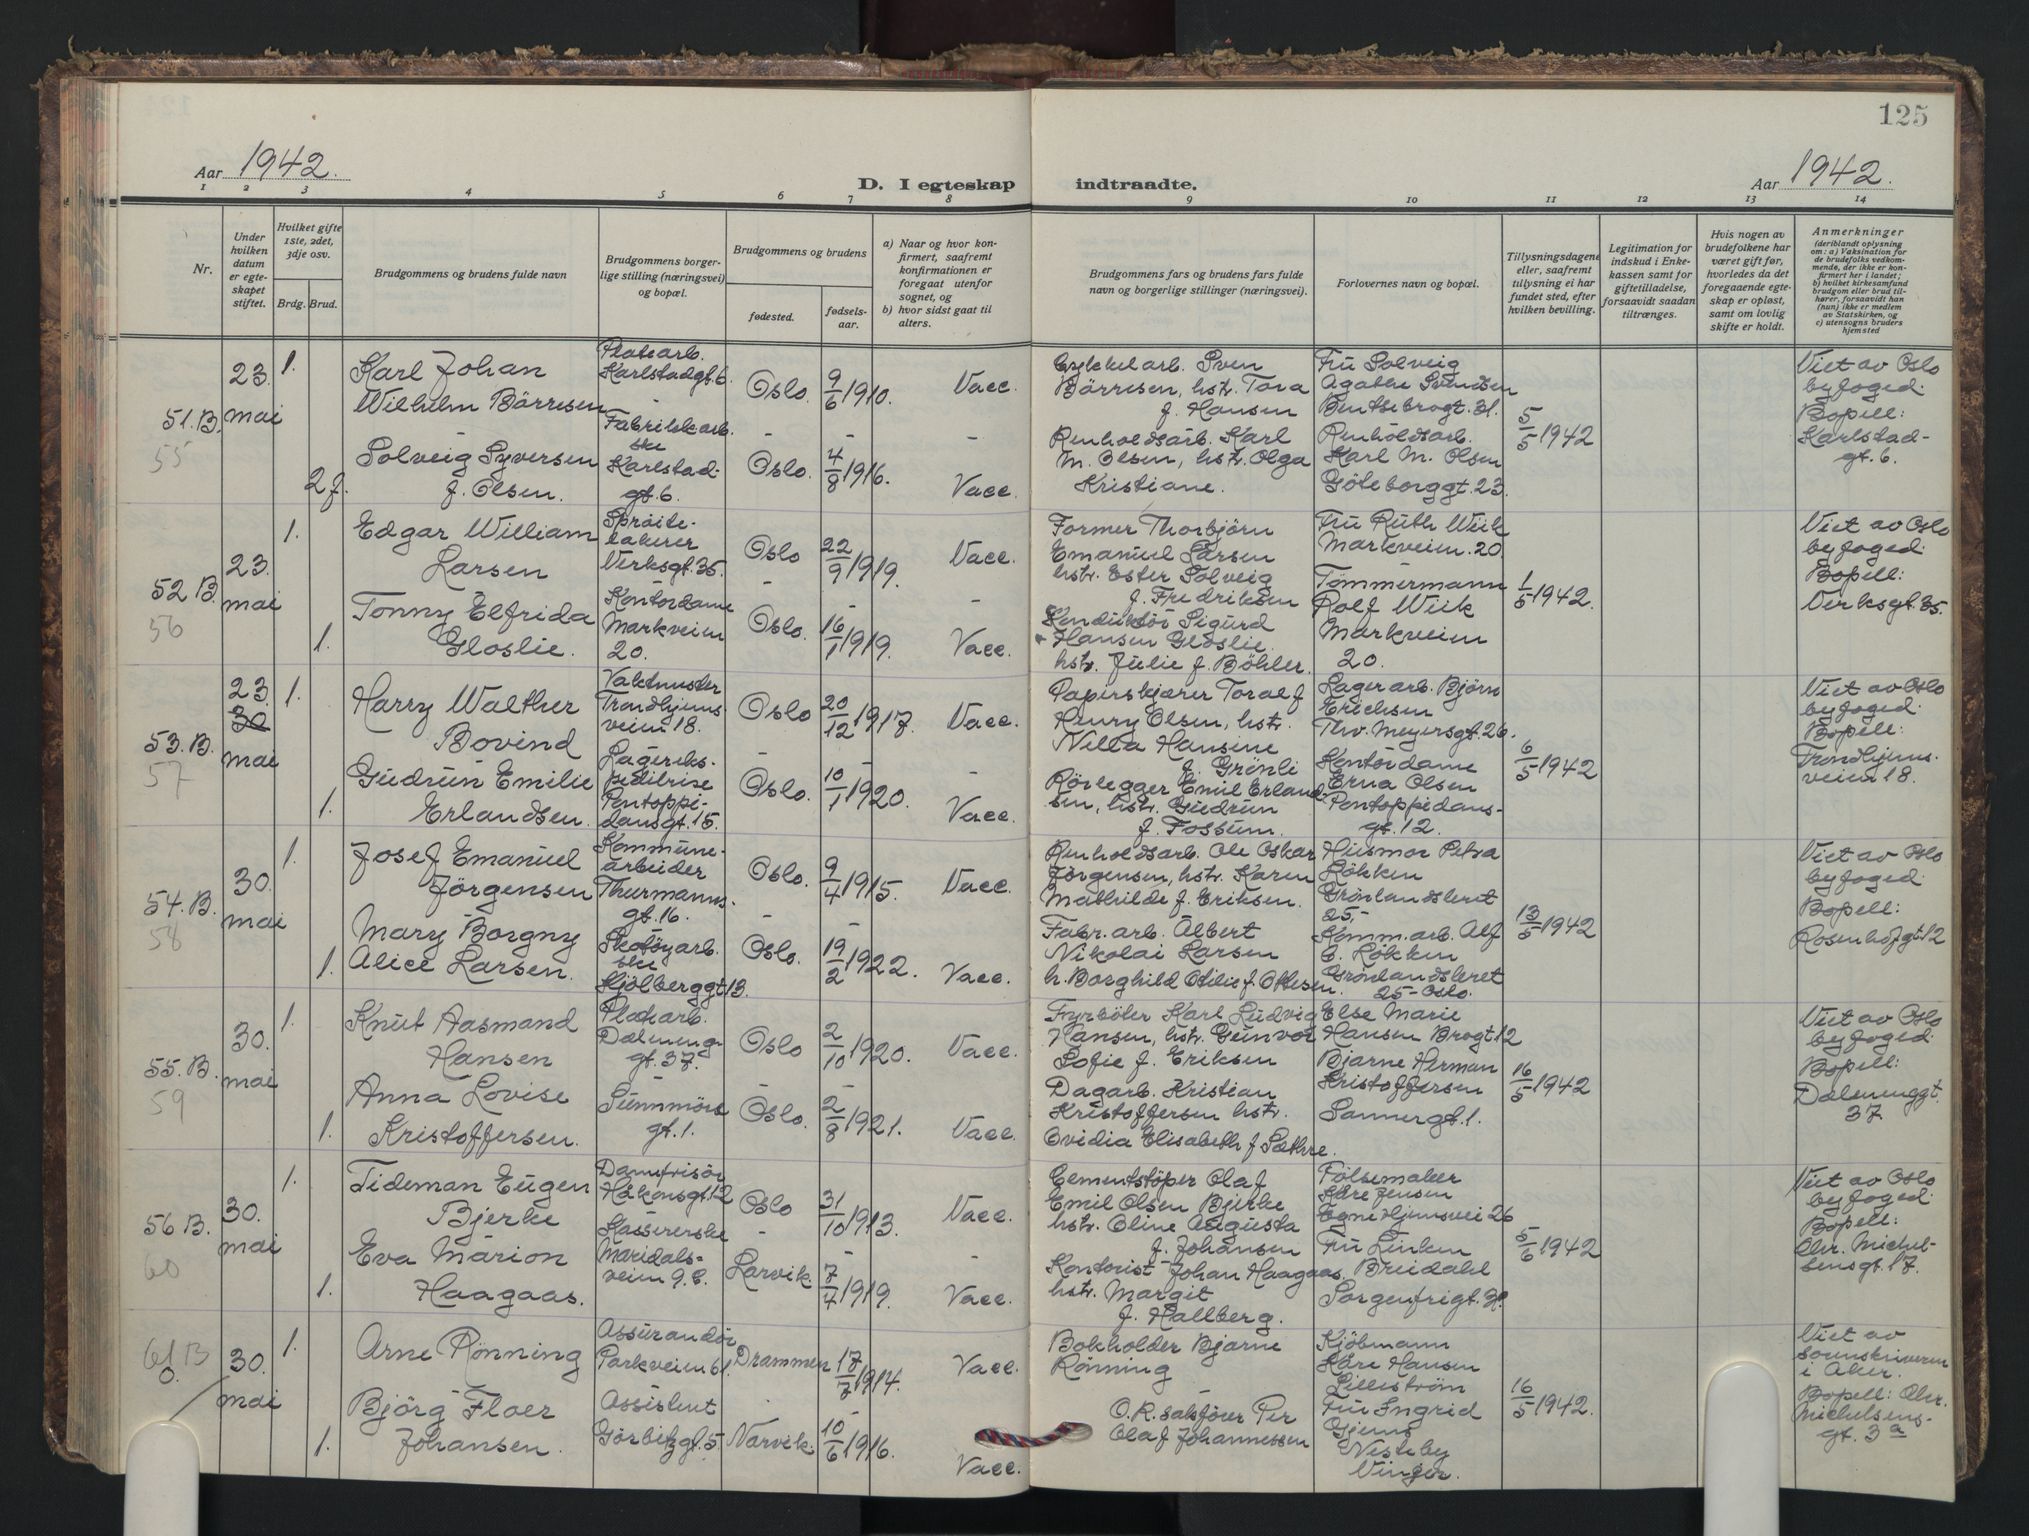 125
Aar 1942.
D. I egteskap indtraadte.
Aar 1942.
1 2 3 4 5 6 7 8 9 10 11 12 13 14
Nr.
Under hvilken datum er egteskapet stiftet.
Hvilket gifte 1ste, 2det, 3dje osv.
Brdg. Brud.
Brudgommens og brudens fulde navn
Brudgommens borgerlige stilling (næringsvei) og bopæl.
Brudgommens og brudens
fødested.
fødselsaar.
a) Naar og hvor konfirmert, saafremt konfirmationen er foregaat utenfor sognet, og
b) hvor sidst gaat til alters.
Brudgommens fars og brudens fars fulde navn og borgerlige stillinger (næringsvei).
Forlovernes navn og bopæl.
Tillysningsdagene eller, saafremt tillysning ei har fundet sted, efter hvilken bevilling.
Legitimation for indskud i Enkekassen samt for giftetilladelse, forsaavidt saadan tiltrænges.
Hvis nogen av brudefolkene har været gift før, hvorledes da det foregaaende egteskap er opløst, samt om lovlig skifte er holdt.
Anmerkninger
(deriblandt oplysning om: a) Vaksination for de brudefolks vedkommende, der ikke er konfirmert her i landet; b) hvilket kirkesamfund brudgom eller brud tilhører, forsaavidt han (hun) ikke er medlem av Statskirken, og c) utensogns bruders hjemsted
51. B.
55
23. mai
1.
Karl Johan
Wilhelm Børresen
Platearb.
Karlstadgt. 6.
Oslo.
9/6 1910.
Vacc.
2 f.
Solveig Syversen
f. Olsen.
Fabrikkarb.
ske
Karlstad-
gt. 6.
Oslo.
4/8 1916.
Vacc.
Børresen, hstr. Tora
f. Hansen
Renholdsarb. Karl
M. Olsen, hstr. Olga
Kristiane.
Fru Solveig
Agathe Svendsen
Bentsebrogt. 31.
Renholdsarb.
Karl M. Olsen
Göteborggt. 23.
5/5 1942
Viet av Oslo
byfoged.
Bopell:
Karlstad-
gt. 6.
52 B.
56
23. mai
1.
Edgar William
Larsen
Sprøite-
lakerer
Verksgt. 35.
Oslo
22/9 1919.
Vacc.
1.
Tonny Elfrida
Gloslie.
Kontordame
Markveien
20.
Oslo.
16/1 1919.
Vacc.
Former Thorbjörn
Emanuel Larsen
hstr. Ester Solveig
f. Fredriksen
Konduktör Sigurd
Hansen Gloslie.
hstr. Julie f. Böhler.
Fru Ruth Wiik
Markveien. 20
Tømmermann
Rolf Wiik
Markveien
20.
1/5 1942.
Viet av Oslo
byfoged.
Bopell:
Verksgt. 35.
53. B.
57
23. 30 mai
1.
Harry Walther
Bovind
Vaktmester
Trondhjems-
veien 18.
Oslo
20/12 1917.
Vacc.
1.
Gudrun Emilie
Erlandsen.
Lagereks-
peditrise
Pontoppi-
dansgt. 15.
Oslo.
10/1 1920.
Vacc.
Papirskjærer Toralf
Henry Olsen, hstr.
Nilla Hansine
f. Grönli
Rörlegger Emil Erland-
sen, hstr. Gudrun
f. Fossum.
Lagerarb. Björn
Erichsen
Thv. Meyersgt. 26.
Kontordame
Erna Olsen
Pontoppidans-
gt. 12.
6/5 1942
Viet av Oslo
byfoged.
Bopell:
Trondhjems-
veien 18.
54. B.
58
30. mai
1.
Josef Emanuel
Jörgensen
Kommune-
arbeider
Thurmanns-
gt. 16.
Oslo.
9/4 1915.
Vacc.
1.
Mary Borgny
Alice Larsen.
Skotøyarb.
ske
Kjölberggt. 13.
Oslo.
19/2 1922.
Vacc.
Renholdsarb. Ole Oskar
Jørgensen, hstr. Karen
Mathilde f. Eriksen.
Fabr. arb. Albert
Nikolai Larsen
h. Borghild Otilie f. Ottesen.
Husmor Petra
Løkken
Grønlandsleret
25.-
Komm. arb. Alf
C. Løkken
Grønlandsleret
25 - Oslo.
13/5 1942
Viet av Oslo
byfoged.
Bopell:
Rosenhofgt. 12
55. B.
59
30. mai
1.
Knut Aasmand
Hansen
Platearb.
Dæleneng-
gt. 37.
Oslo
2/10 1920.
Vacc.
1.
Anna Lovise
Kristoffersen.
Sunnmörs
gt. 1.
Oslo.
2/8 1921.
Vacc.
Fyrböter Karl Ludvig
Hansen, hstr. Gunvor
Sofie f. Eriksen
Dagarb. Kristian
Kristoffersen hstr.
Ovidia Elisabeth f. Sæthre.
Else Marie
Hansen Brogt. 12
Bjarne Herman
Kristoffersen
Sannergt. 1.
16/5 1942
Viet av Oslo
byfoged.
Bopell:
Dælenenggt.
37
56 B.
60
30. mai
1.
Tideman Eugen
Bjerke
Damefrisör
Håkonsgt. 12
Oslo
31/10 1913.
Vacc.
1.
Eva Marion
Haagaas.
Kassererske
Maridals-
veien 9. C.
Larvik.
7/4 1919.
Vacc.
Cementstöper Olaf
Emil Olsen Bjerke
hstr. Oline Augusta
f. Johansen
Kontorist Johan Haagaas.
hstr. Margit
f. Hallberg.
Pølsemaker
Kåre Jensen
Egne Hjemsvei 26
Fru Linken
Breidahl
Sorgenfrigt.
5/6 1942
Viet av Oslo
byfoged.
Bopell:
Chr. Michel-
sensgt. 17.
61 B
30. mai
1.
Arne Rönning
Assurandör
Parkveien 61.
Drammen
17/7 1914.
Vacc.
1.
Björg Floer
Johansen.
Assistent
Görbitzgt. 5
Narvik.
10/6 1916.
Vacc.
Bokholder Bjarne
Rønning
O.R. saksfører Per
Olaf Johannessen
Kjöbmann
Kåre Hansen
Lilleström
Fru Ingrid
Gjems
Vinger.
16/5 1942.
Viet av
sorenskriveren
i Aker.
Bopell: Chr.
Michelsens-
gt. 3a